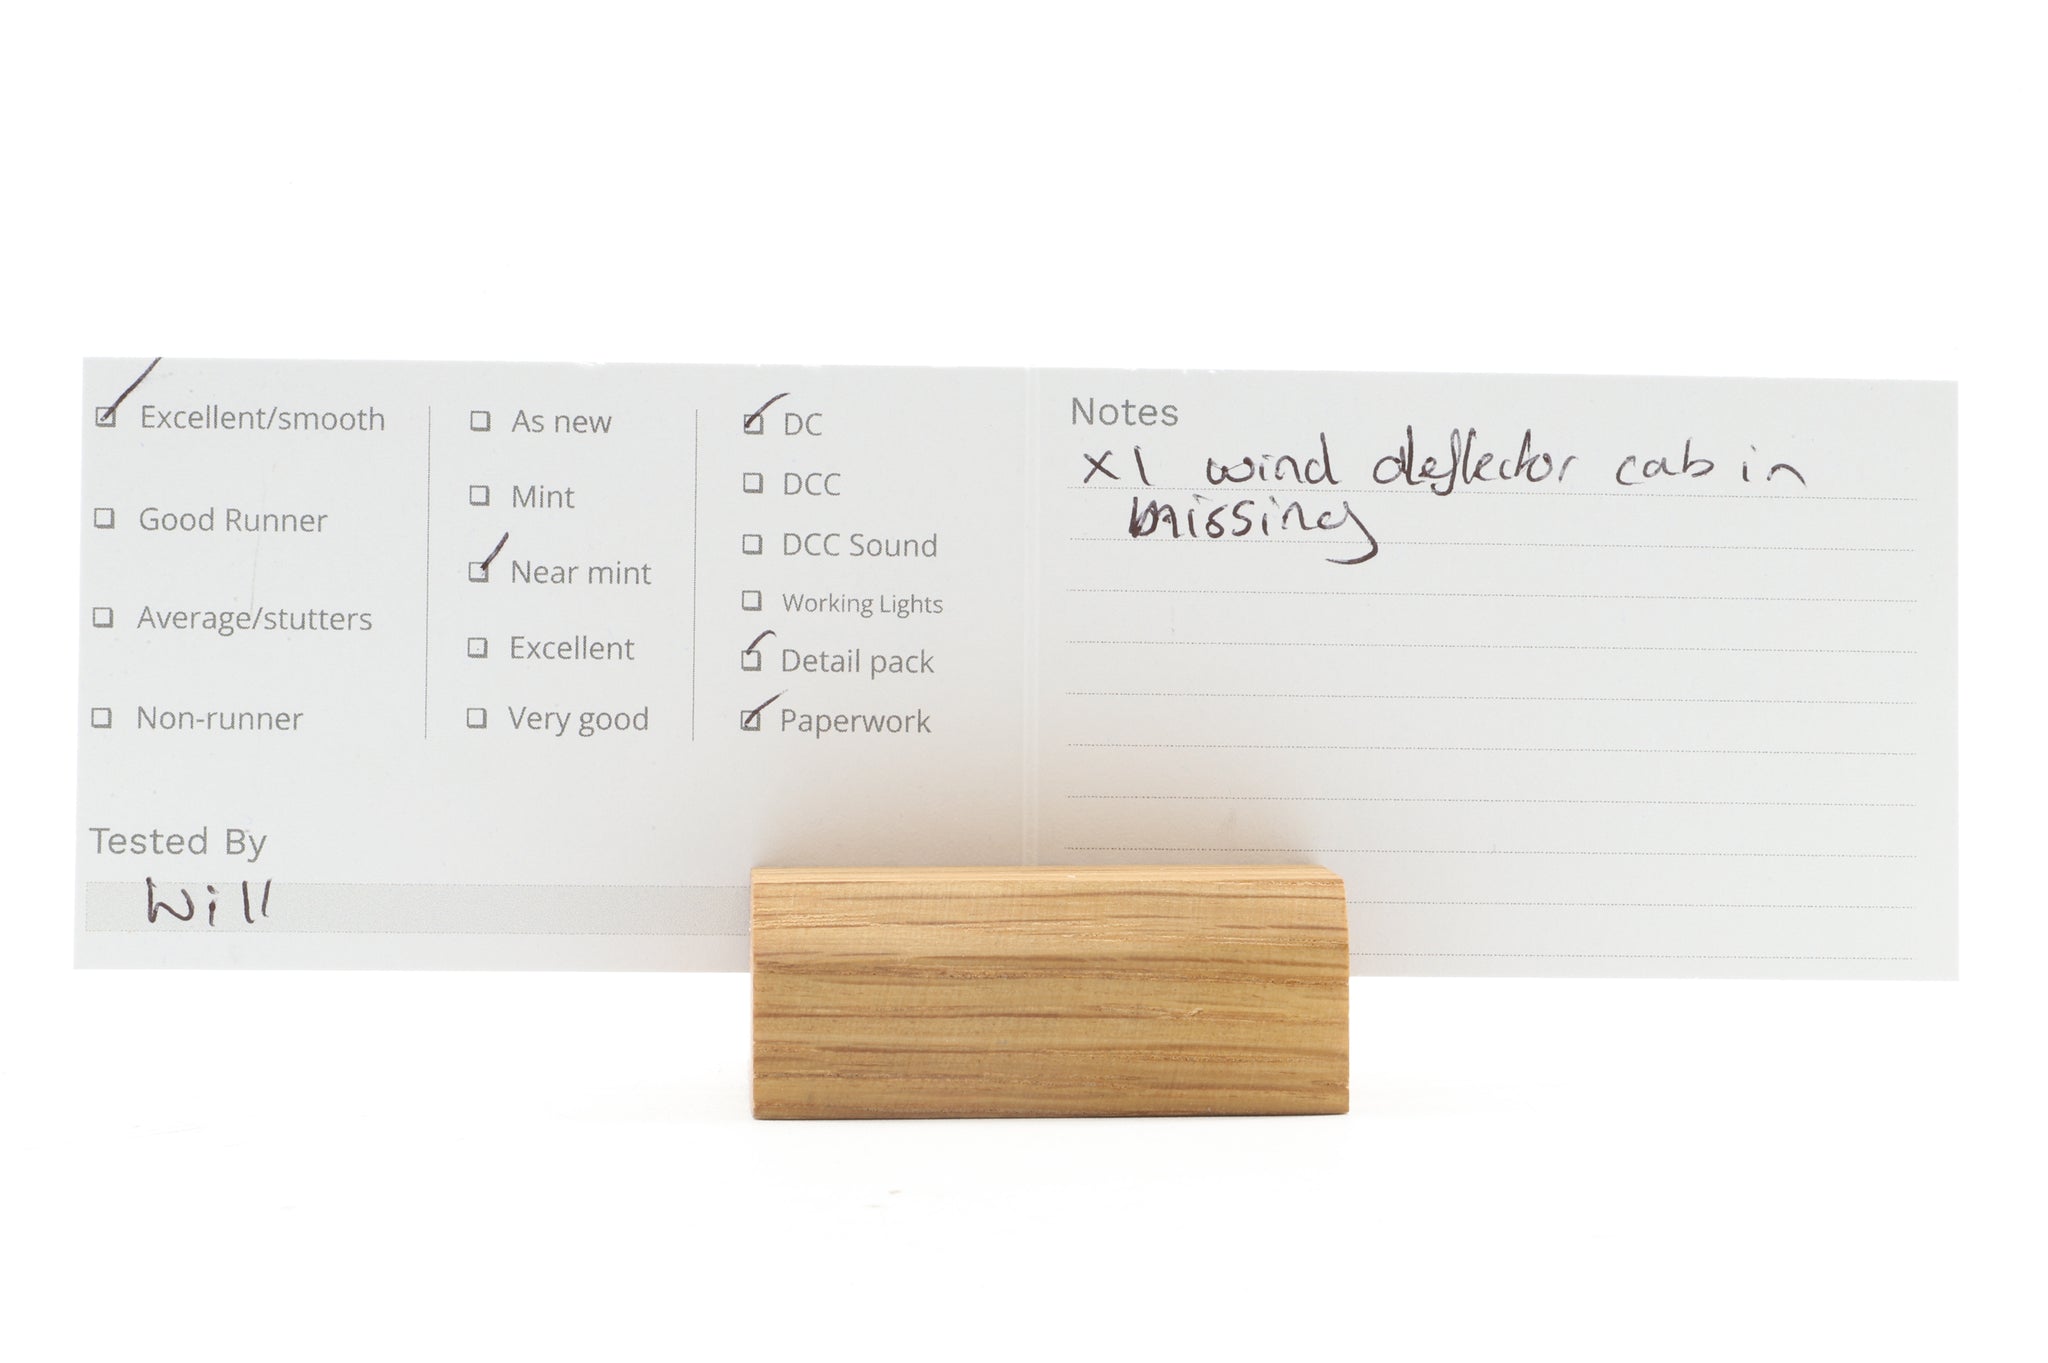 Excellent/smooth
Good Runner
Average/stutters
Non-runner
As new
Mint
Near mint
Excellent
Very good
DC
DCC
DCC Sound
Working Lights
Detail pack
Paperwork
Tested By
Will
Notes
x1 wind deflector cab in
missing